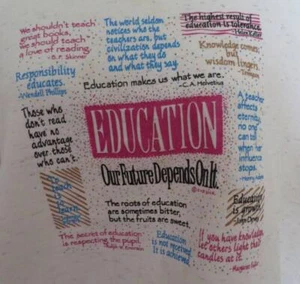 We shouldn't teach
great books,
we should teach
a love of reading.
B.F. Skinner
The world seldom
notices who the
teachers are, but
civilization depends
on what they do
and what they say.
The highest result of
education is tolerance.
Helen Keller
Knowledge comes,
but
wisdom lingers.
Tennyson
Responsibility
educates.
Wendell Phillips
Education makes us what we are.
C.A. Helvetius
Those who
don't read
have no
advantage
over those
who can't.
EDUCATION
Our Future Depends On It.
A teacher
affects
eternity,
no one
can tell
where
his
influence
stops.
Henry Adams
The roots of education
are sometimes bitter,
but the fruits are sweet.
To teach
is to learn
The secret of education
is respecting the pupil.
Education
is not received.
It is achieved.
Education
If you have knowledge,
let others light their
candles at it.
Margaret Fuller